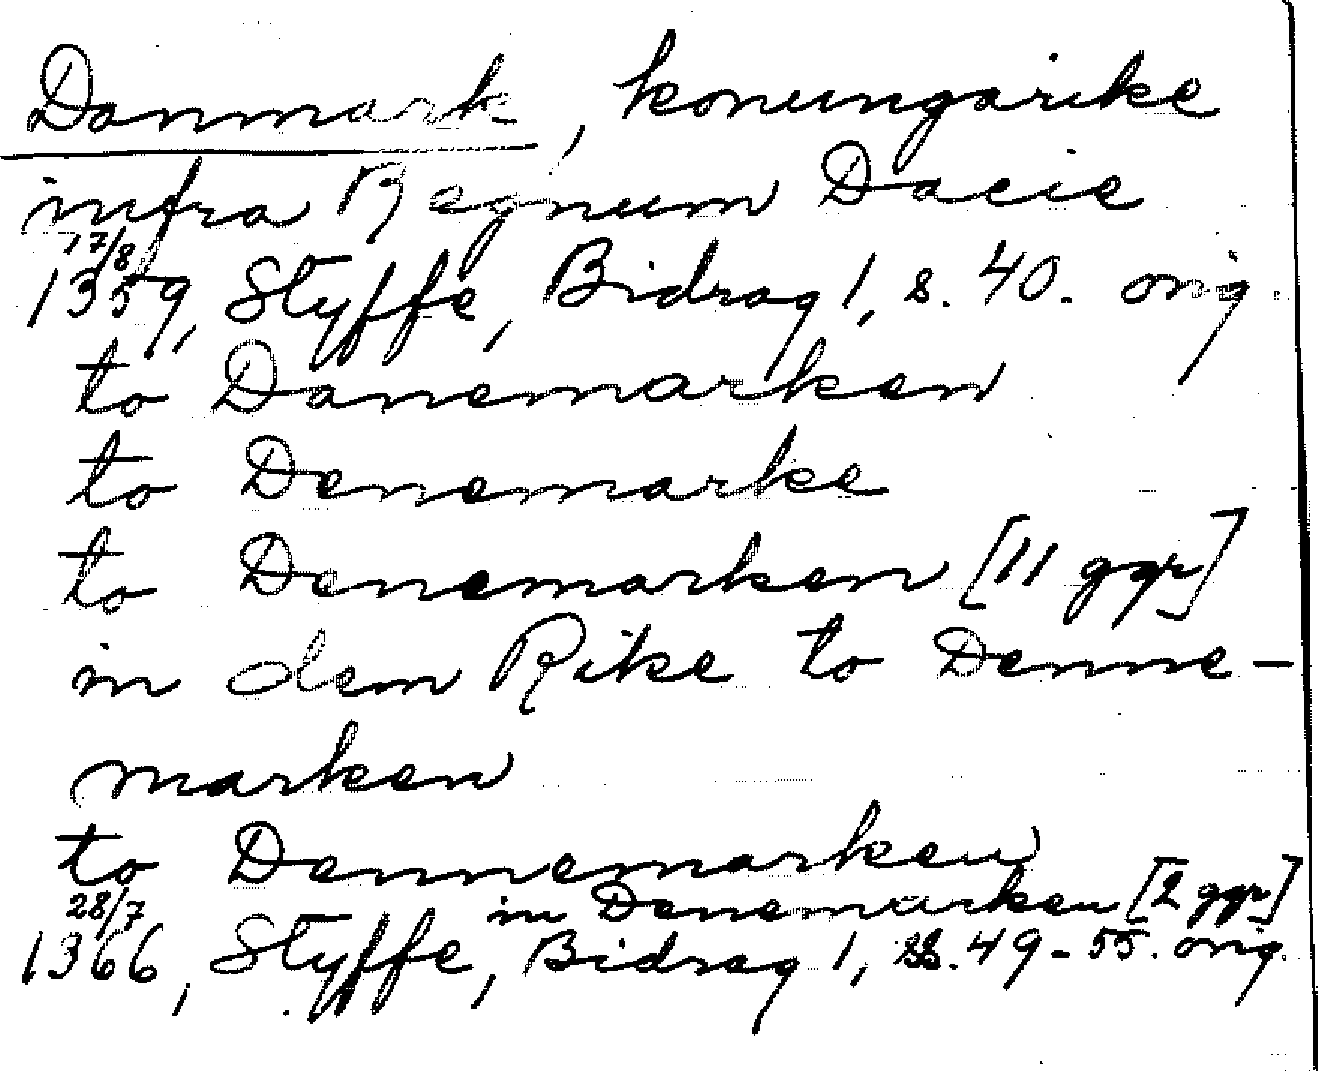 Danmark, konungarike
infra Regnum Dacie
17/8
1359, Styffe, Bidrag 1, s. 40. orig.
to Danemarken
to Denemarke
to Denemarken [11 ggr]
in dem Rike to Denne-
marken
to Dennemarken
in Denemarken [2 ggr]
28/7
1366, Styffe, Bidrag 1, ss. 49-55. orig.